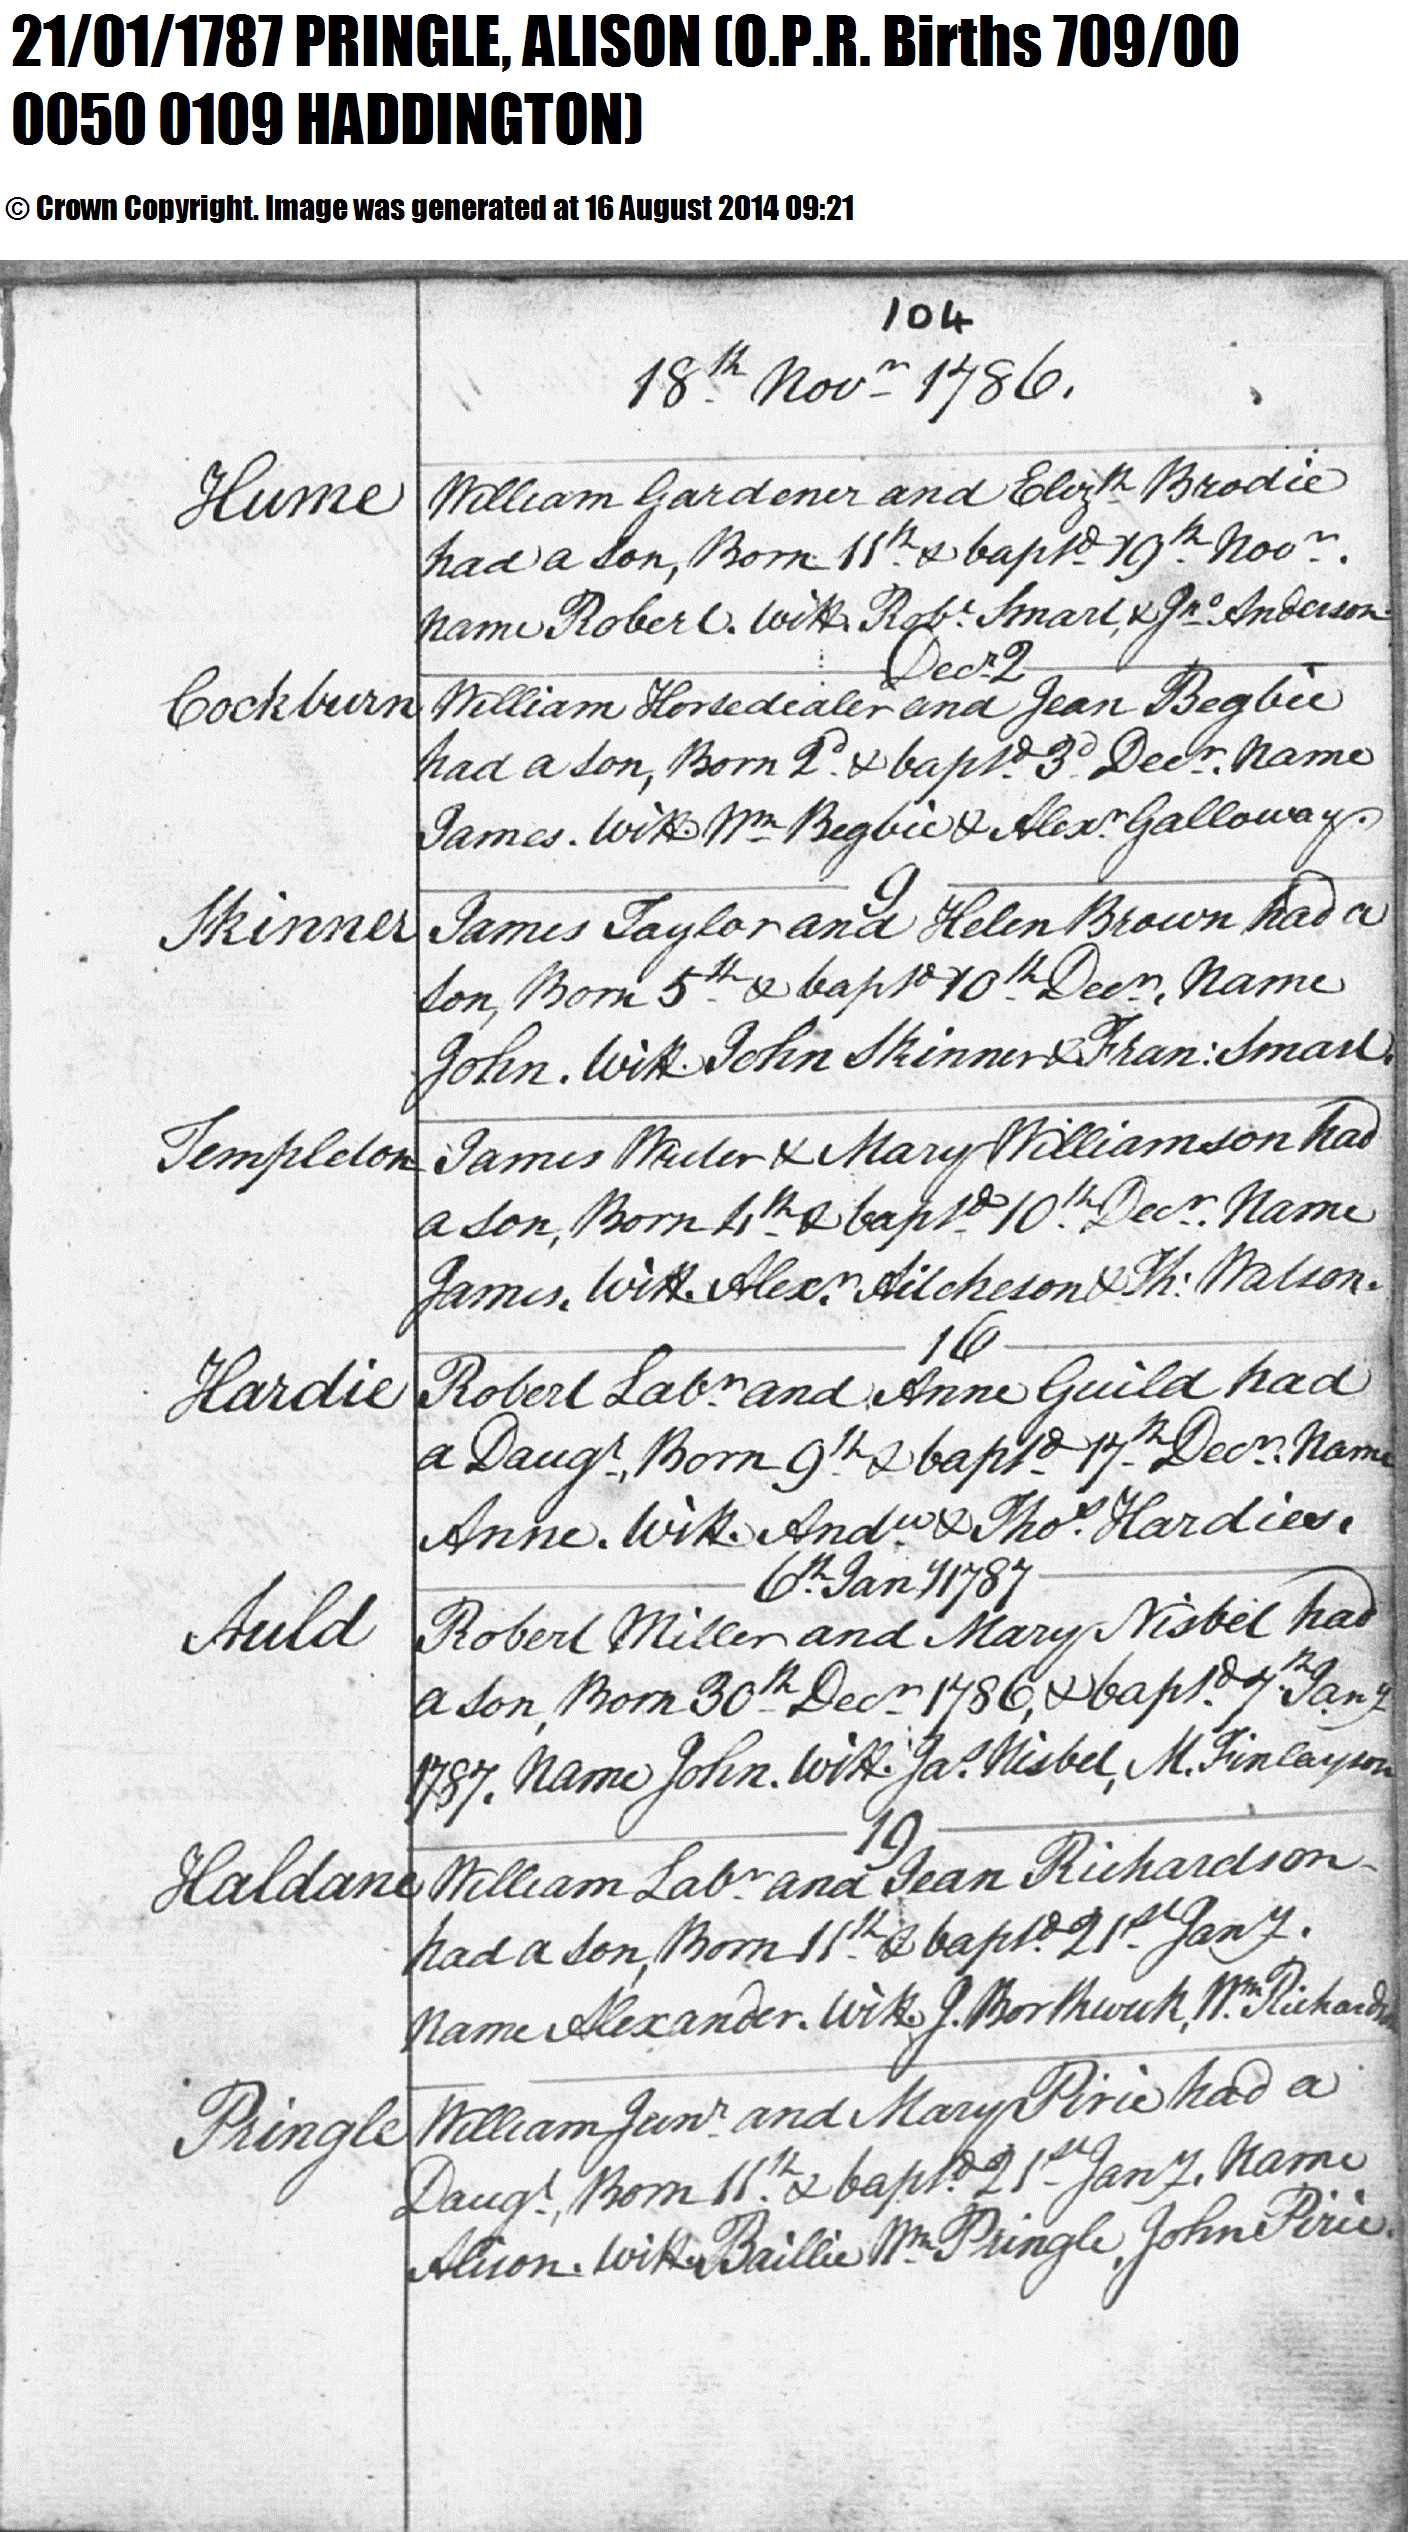 21/01/1787 PRINGLE, ALISON (O.P.R. Births 709/00
0050 0109 HADDINGTON)
© Crown Copyright. Image was generated at 16 August 2014 09:21
104
18th Novr 1786.
Hume William Gardener and Elizth Brodie
had a son, Born 11th & baptd 19th Novr.
Name Robert. Witt. Robt Smart, & Jno Anderson
Decr 2
Cockburn William Horsedealer and Jean Begbie
had a son, Born 2d & baptd 3d Decr. Name
James. Witt. Wm Begbie & Alexr Galloway.
9
Skinner James Taylor and Helen Brown had a
son, Born 5th & baptd 10th Decr. Name
John. Witt. John Skinner & Fran: Smart.
Templeton James & Mary Williamson had
a son, Born 4th & baptd 10th Decr. Name
James. Witt. Alexr Aitcheson & Th: Watson.
16
Hardie Robert Labr and Anne Guild had
a Daugt, Born 9th & baptd 17th Decr. Name
Anne. Witt. Andw & Thos Hardies.
6th Jany 1787
Auld Robert Miller and Mary Nisbet had
a son, Born 30th Decr 1786, & baptd 7th Jany
1787. Name John. Witt. Jas Nisbet, M. Finlayson
19
Haldane William Labr and Jean Richardson
had a son, Born 11th & baptd 21st Jany.
Name Alexander. Witt. J. Borthwick, Wm Richardson
Pringle William Junr and Mary Pirie had a
Daugt, Born 11th & baptd 21st Jany. Name
Alison. Witt. Baillie Wm Pringle, John Pirie.